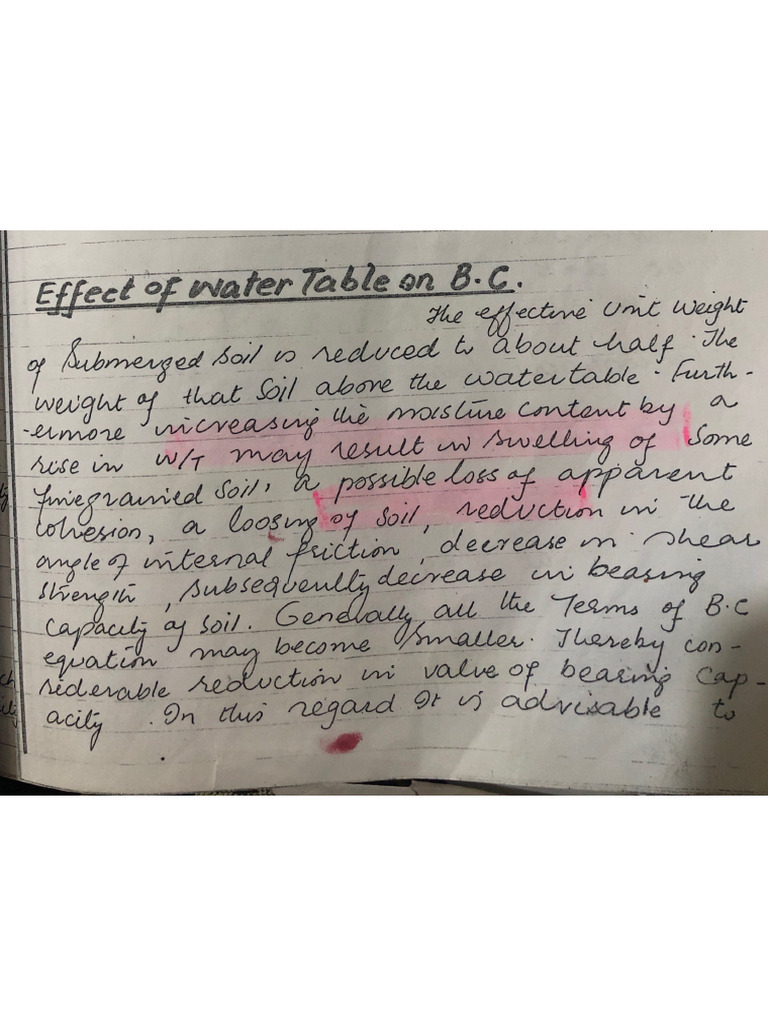 Effect of Water Table on B.C.
The effective Unit Weight
of Submerged soil is reduced to about half. The
weight of that soil above the watertable. Furth-
-ermore increasing the moisture content by a
rise in W/T may result in swelling of some
finegrained soil, a possible loss of apparent
cohesion, a loosing of soil, reduction in the
angle of internal friction, decrease in shear
strength, subsequently decrease in bearing
capacity of soil. Generally all the Terms of B.C
equation may become smaller. Thereby con-
siderable reduction in value of bearing cap-
acity. In this regard It is advisable to